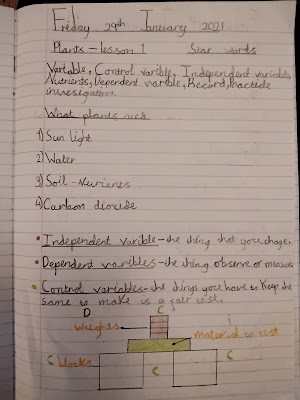 Friday 29th January 2021
Plants - lesson 1 Star words
Variable, Control varible, Independent variable,
Nutrients, Dependent varible, Record, Practicle
investigation.
What plants need
1) Sun light
2) Water
3) Soil - Nurients
4) Carbon dioxide
• Independent varible - the thing that you change.
• Dependent varibles - the thing observe or measure
• Control variables - the things you have to keep the
same to make is a fair test.
D C
Weights material to test
C blocks C C